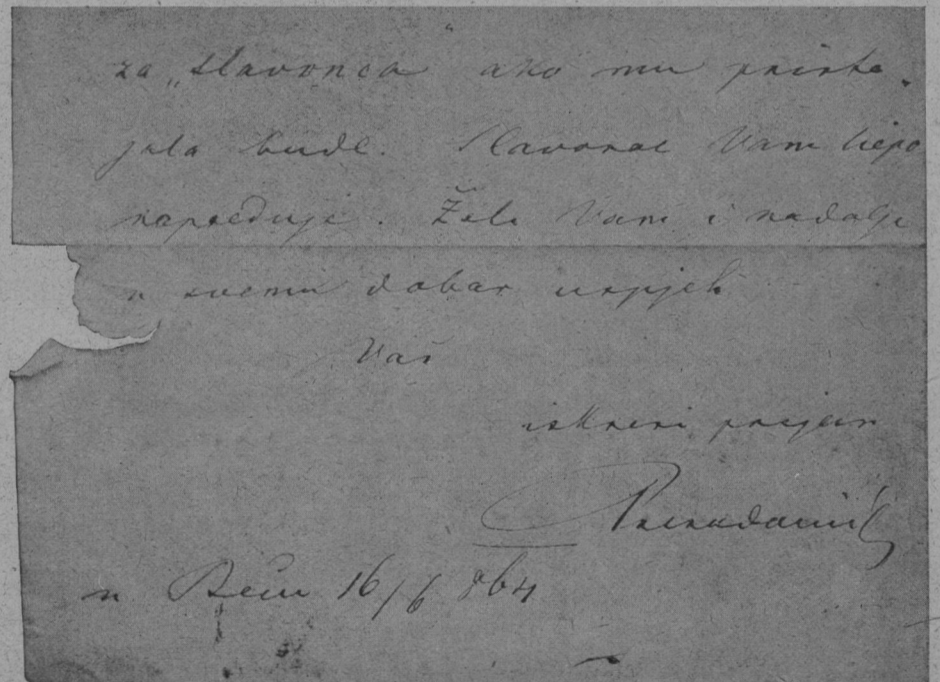 za „Slavonca" ako mu prista-
jala bude. Slavonac Vam liepo
napreduje. Želi Vam i nadalje
u svemu dobar uspjeh
Vaš
iskreni prijan
Preradović
u Beču 16/6 864